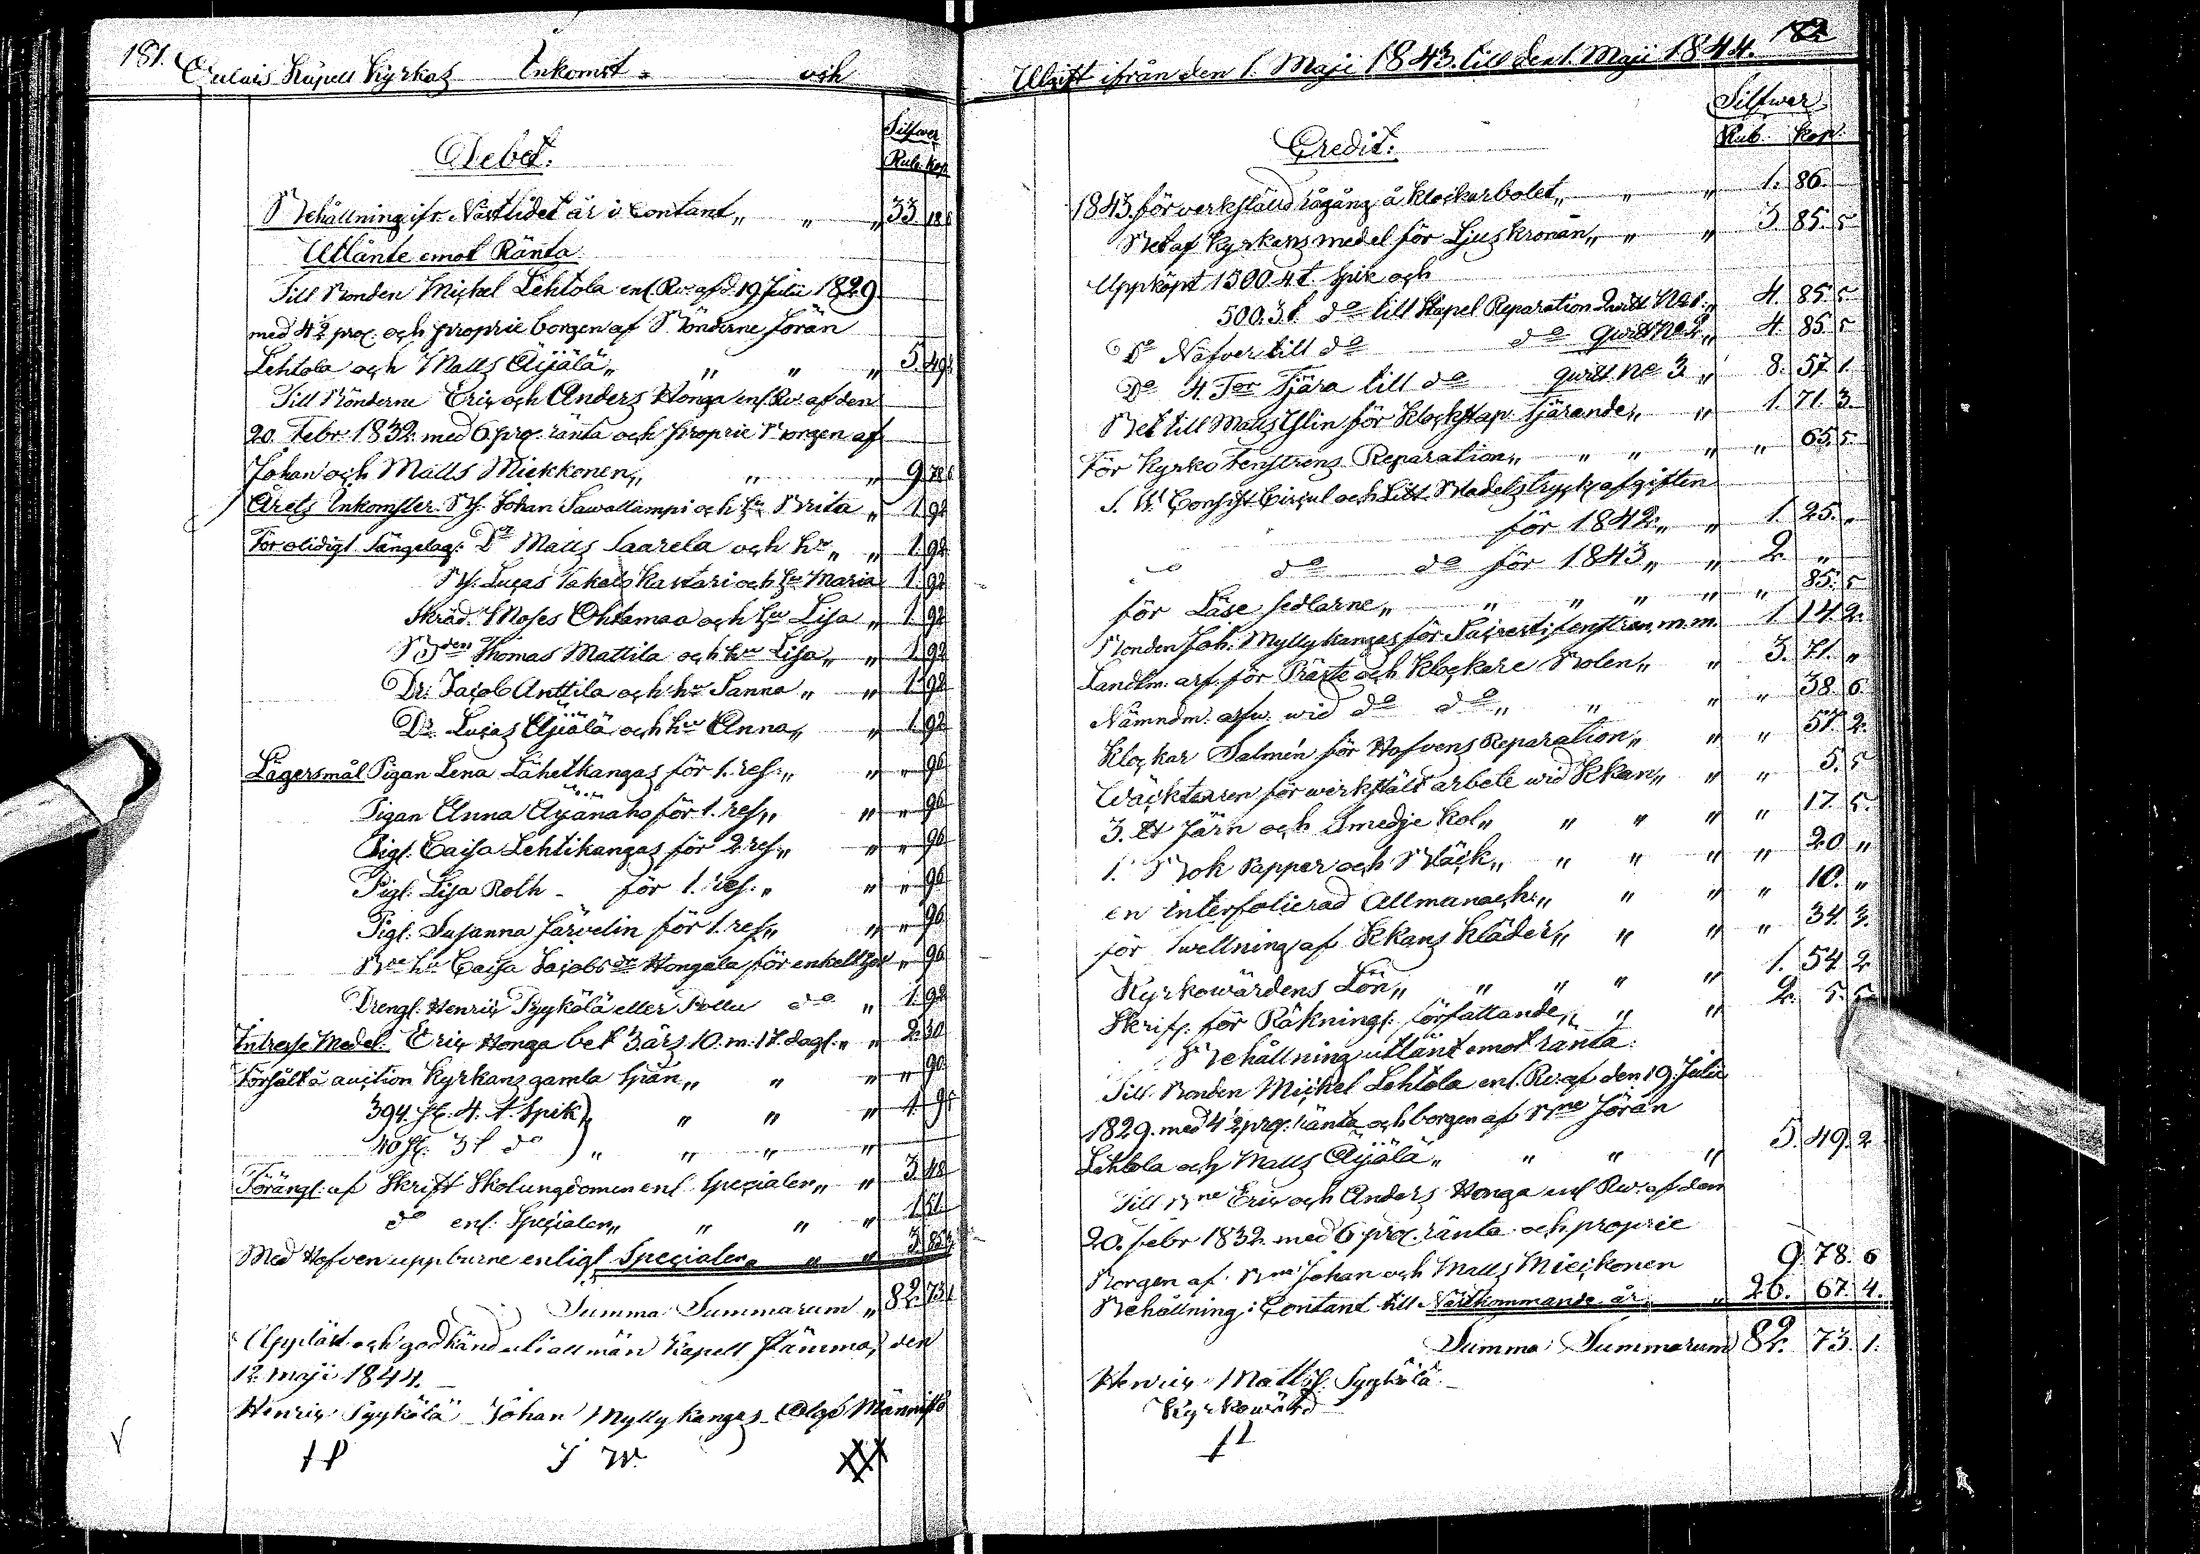 181.
Kapell Kyrkas Inkomst = och
Debet.
Silfwer
Rub. kop
Behållning ifr. Nästlidet år i Contant „ „ „ 33 18 6
Utlånte emot Ränta
Till Bonden Michel Lehtola enl. Rv. af d. 19 Julii 1829
med 4½ proc. och proprie borgen af Bönderne Jöran
Lehtola och Matts Äijälä „ „ „ „ 5. 49 2
Till Bönderne Eric och Anders Honga enl. Rv. af den
20. Febr. 1832 med 6 proc. ränta och proprie Borgen af
Johan och Matts Miekkonen „ „ „ 9 78 6
Årets Inkomster. Johan Sawallampi och hu Brita „ 1. 92
För olidigt Sängelag: Do Matts Saarela och hu „ „ 1. 92
Lucas Takalo Kastari och hu Maria 1. 92
Skräd. Moses Ohtamaa och hu Lisa „ 1. 92
Bden Thomas Mattila och hu Lisa „ „ 1. 92
Dr: Jacob Anttila och hu Sanna „ „ 1. 92
Dr: Lucas Äijälä och hu Anna „ „ 1. 92
Lägersmål Pigan Lena Lähetkangas för 1. res: „ „ „ 96
Pigan Anna Äijänaho för 1. res „ „ „ 96
Pigl: Caisa Lehtikangas för 2. res „ „ „ 96
Pigl: Lisa Roth - för 1. res: „ „ „ 96
Pigl: Susanna Järvelin för 1. res „ „ „ 96
hu Caisa Jacobsdr Hongala för enkelt hor „ 96
Drengl: Henric Pyykölä eller Pollu do „ 1. 92
Intresse Medel: Eric Honga bet 3 års 10. m. 17. dagl. „ „ 2. 30
Försålt å auction Kyrkans gamla spån „ „ „ „ 90
394. st. 4. t. Spik) „ „ „ 1. 95
40 st. 3 t do ) „ „ „ „
Förängl: af Skrift Skolungdomen enl. Specialen „ „ 3. 48
do enl. Specialen „ „ „ „ 1 51
Med Hofven uppburne enligt Specialen „ „ 3 85 5
Summa Summarum „ 82. 73 1
Uppläst och godkänd uti allmän Kapell Stämma, den
12. maji 1844. –
Henric Pyykölä Johan Myllykangas Olgo Männistö
J W. XX
182
Utgift ifrån den 1. Maji 1843. till den 1. Maji 1844.
Silfwer
Rub. Kop.
Credit.
1843. för verkställd rågång å klockarbolet „ „ „ 1. 86.
Bet af Kyrkans medel för Ljuskronan „ „ „ 3 85. 5
Uppköpt 1500. 4 t. spik och
500. 3 t. do till Stapel Reparation Quitt No 1: „ 4. 85 5
Do Näfver till do do quitt No 2 „ 4. 85. 5
Do 4 Tor Tjära till do quitt. No 3. „ 8. 57 1.
Bet till Matts Ylin för Klockstap. tjärande „ „ 1. 71. 3.
För Kyrko Fenstrens Reparation „ „ „ „ „ 65. 5.
Consist Circul och Litt. Bladets tryck afgiften
för 1842. „ „ 1. 25. „
do do för 1843 „ „ 2 „
för Läse sedlarne „ „ „ „ „ „ 85. 5
Bonden Joh. Myllykangas för Sacresti fenstren, m. m. 1 14 2.
Landtm. arf. för Präste och Klockare Bolen „ „ 3. 71. „
Nämndm. arfw. wid do do „ „ „ „ 38. 6.
Klockar Salmén för Hofvens Reparation „ „ „ 57 2.
Wäcktaren för werkstält arbete wid Kkan „ „ „ 5. 5
3. Järn och Smedje kol „ „ „ „ „ 17. 5.
1. Bok Papper och Bläck „ „ „ „ „ 20 „
en interfolierad Allmanach: „ „ „ „ 10. „
för twettning af Kkans Kläder „ „ „ „ 34 3.
Kyrkowärdens Lön „ „ „ „ 1. 54 2
Skrifs: för Räknings författande „ „ „ 2. 5. 5
Behållning utlänt emot ränta:
Till Bonden Michel Lehtola enl. Rv. af den 19. Julii
1829. med 4½ proc. ränta och borgen af Bne Jöran
Lehtola och Matts Äijälä „ „ „ „ 5. 49. 2.
Till Bne Eric och Anders Honga enl Rv. af den
20. febr 1832. med 6 proc. ränta och proprie
Borgen af Bne Johan och Matts Mieckonen 9. 78. 6
Behållning i Contant till Nästkommande år „ 26. 67. 4.
Summa Summarum 82. 73. 1.
Henric Matts. Pyykölä. –
Kyrkowärd